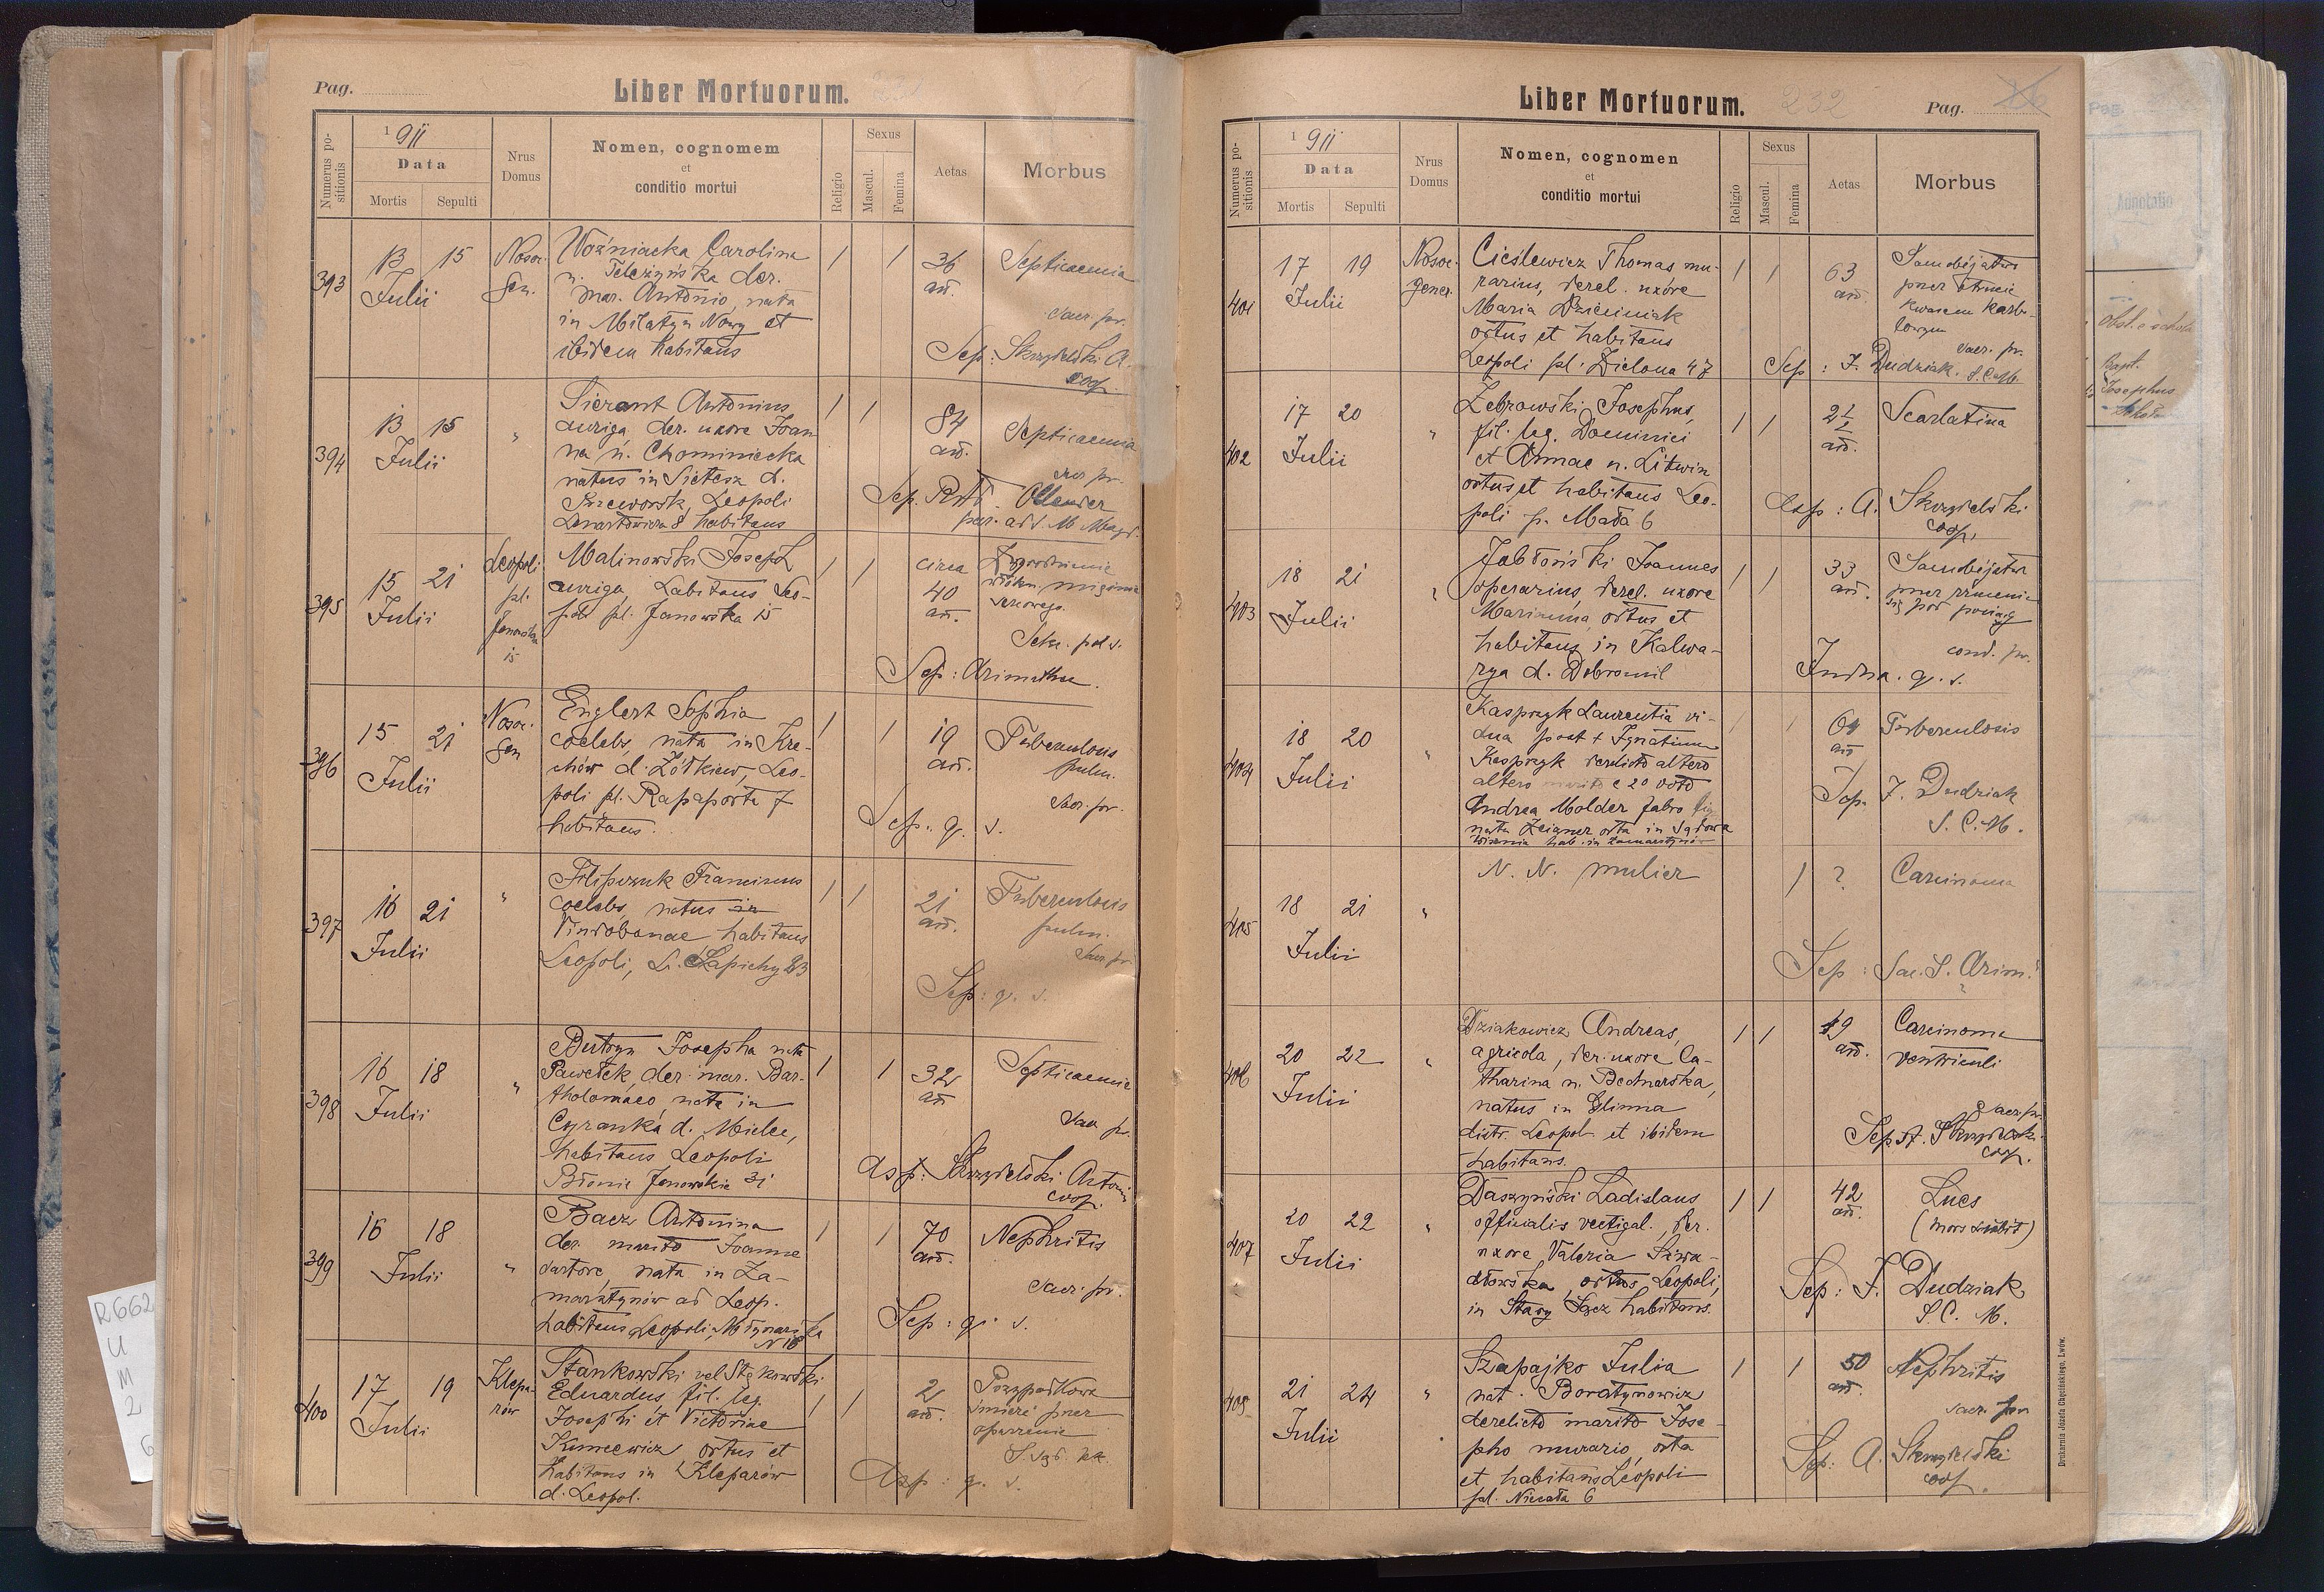 Pag.
Liber Mortuorum.
Numerus positionis
1911
Data
Mortis
Sepulti
Nrus Domus
Nomen, cognomem
et
conditio mortui
Religio
Sexus
Mascul.
Femina
Aetas
Morbus
393
13 15
Julii
Nosoc. gen.
Woźniacka Carolina
n. Teleżyńska der.
mar. Antonio, nata
in Milatyn Nowy et
ibidem habitans
1 1
36 an.
Septicaemia
Sacr. pr.
Sep: Skrzydelski A.
coop.
394
13 15
Julii
"
Sierant Antonius
auriga, der. uxore Joan
na n. Chominiecka
natus in Sietesz d.
Przeworsk, Leopoli
Lenartowicza 8 habitans
1 1
84 an.
Septicaemia
Sacr. pr.
Sep.
par. ad S. M. Magd.
395
15 21
Julii
Leopoli
pl.
Janowska
15
Malinowski Joseph
auriga, habitans Leo-
poli pl. Janowska 15
1 1
circa
40
an.
Zwyrodnienie
włókn. mięśnia
sercowego
Sek. pol. s.
Sep: Arimathea.
396
15 21
Julii
Nosoc.
gen
Englert Sophia
coelebs, nata in Kre-
chów d. Żółkiew, Leo-
poli pl. Rapaporta 7
habitans.
1 1
19
an.
Tuberculosis
pulm.
Sacr. pr.
Sep: q. s.
397
16 21
Julii
"
Filipczuk Franciscus
coelebs, natus in
Vindobonae habitans
Leopoli, L. Sapiehy 23
1 1
21
an.
Tuberculosis
pulm.
Sacr. pr.
Sep: q. s.
398
16 18
Julii
"
Butryn Josepha nata
Pawełek, der. mar. Bar-
tholomaeo, nata in
Cyranka d. Mielec,
habitans Leopoli
Błonie Janowskie 31
1 1
32
an
Septicaemia
Sacr. pr.
Asp: Skrzydelski Antoni
coop.
399
16 18
Julii
"
Bacz Antonina
der. marito Joanne
sartore, nata in Za-
marstynów ad Leop.
habitans Leopoli, Młynarska
N 16
1 1
70
an.
Nephritis
Sacr. pr.
Sep: q. s.
400
17 19
Julii
Klepa-
rów
Stankowski vel Stękowski
Eduardus fil. leg.
Josephi et Victoriae
Kuncewicz ortus et
habitans in Kleparów
d. Leopol.
1 1
2
an.
Przypadkowa
śmierć przez
oparzenie
Asp: q. s.
Liber Mortuorum. 232
Pag.
Numerus positionis
1911
Data
Mortis
Sepulti
Nrus Domus
Nomen, cognomen
et
conditio mortui
Religio
Sexus
Mascul.
Femina
Aetas
Morbus
401
17 19
Julii
Nosoc.
gener.
Cieślewicz Thomas mu-
rarius, derel. uxore
Maria Dzieciniak
ortus et habitans
Leopoli pl. Zielona 47
1 1
63
an.
Samobójstwo
przez otrucie
kwasem karbo-
lowym
Sacr. pr.
Sep: J. Dudziak. S. C. M.
402
17 20
Julii
"
Żebrowski Josephus,
fil. leg. Dominici
et Annae n. Litwin
ortus et habitans Leo-
poli p. Mała 6
1 1
2 1/2
an.
Scarlatina
Asp: A. Skrzydelski
coop.
403
18 21
Julii
"
Jabłoński Joannes
operarius, derel. uxore
Marianna, ortus et
habitans in Kalwa-
rya d. Dobromil
1 1
33
an.
Samobójstwo
przez rzucenie
się pod pociąg
cond. pr.
Indra. q. s.
404
18 20
Julii
"
Kasprzyk Laurentia vi-
dua post + Ignatium
Kasprzyk derelicto altero
altero marito e 20 voto
Andrea Molder fabro lig
nata Zeigner orta in Sądowa
Wisznia hab. in Zamarstynów
1 1
64
an
Tuberculosis
Sep. J. Dudziak
S. C. M.
405
18 21
Julii
"
N. N. mulier
1 ?
Carcinoma
Sep: Sac. S. Arim.
406
20 22
Julii
"
Dziakowicz Andreas,
agricola, der. uxore Ca-
tharina n. Bednarska,
natus in Glinna
distr. Leopol. et ibidem
habitans.
1 1
49
an.
Carcinoma
ventriculi
Sacr. pr.
Sep A. Skrzydelski
coop.
407
20 22
Julii
"
Daszyński Ladislaus
officialis vectigal., der.
uxore Valeria Siwa-
dłowska, ortus Leopoli,
in Stary Sącz habitans.
1 1
42
an.
Lues
(mors subit)
Sep: J. Dudziak
S. C. M.
408
21 24
Julii
"
Szapajko Julia
nat. Boratynowicz
derelicto marito Jose-
pho murario, orta
et habitans Leopoli
pl. Niecała 6
1 1
50
an.
Nephritis
Sacr. pr
Sep: A. Skrzydelski
coop.
Drukarnia Józefa Chęcińskiego, Lwów.
Pag.
Adnotatio
Bapt.
Josephus
R662
U
M
2
6